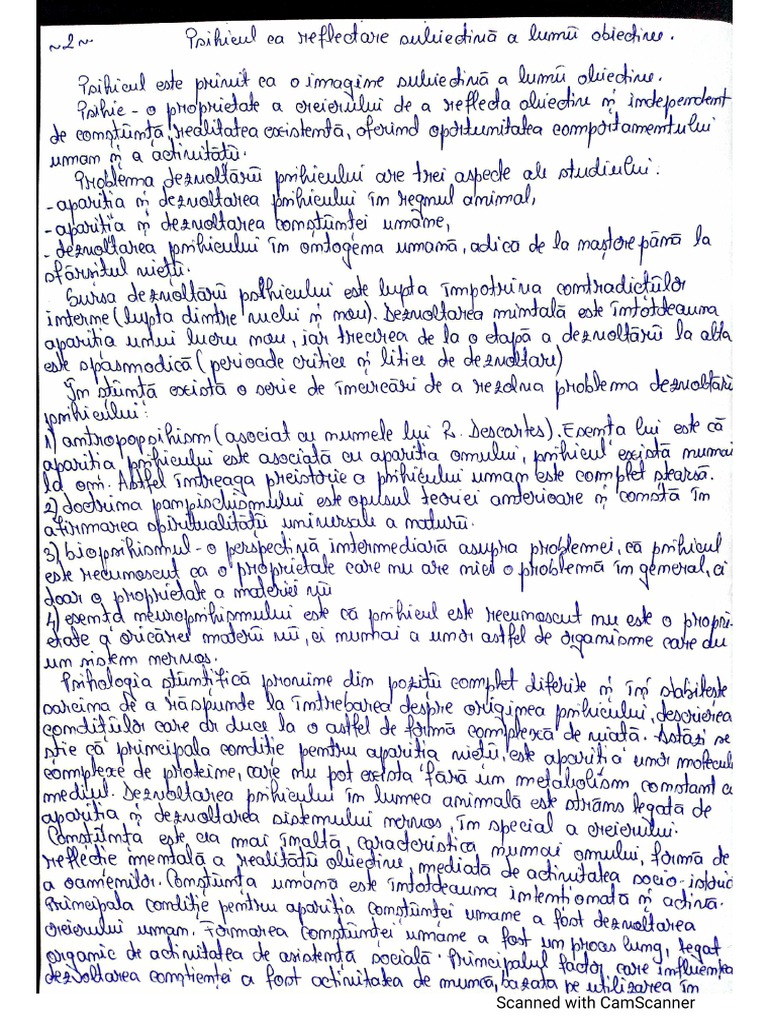 ~2~ Psihicul ca reflectare subiectivă a lumii obiective.
Psihicul este privit ca o imagine subiectivă a lumii obiective.
Psihic - o proprietate a creierului de a reflecta obiectiv și independent
de conștiință, realitatea existentă, oferind oportunitatea comportamentului
uman și a activității.
Problema dezvoltării psihicului are trei aspecte ale studiului:
- apariția și dezvoltarea psihicului în regnul animal,
- apariția și dezvoltarea conștiinței umane,
- dezvoltarea psihicului în ontogema umană, adică de la naștere până la
sfârșitul vieții.
Sursa dezvoltării psihicului este lupta împotriva contradicțiilor
interne (lupta dintre vechi și nou). Dezvoltarea mintală este întotdeauna
apariția unui lucru nou, iar trecerea de la o etapă a dezvoltării la alta
este spasmodică (perioade critice și litice de dezvoltare)
În știință există o serie de încercări de a rezolva problema dezvoltării
psihicului:
1) antropopsihism (asociat cu numele lui R. Descartes). Esența lui este că
apariția psihicului este asociată cu apariția omului, psihicul există numai
la om. Astfel întreaga preistorie a psihicului uman este complet stearsă.
2) doctrina pampsichismului este opusul teoriei anterioare și constă în
afirmarea spiritualității universale a naturii.
3) biopsihismul - o perspectivă intermediară asupra problemei, că psihicul
este recunoscut ca o proprietate care nu are nici o problemă în general, ci
doar o proprietate a materiei vii
4) esența neuropsihismului este că psihicul este recunoscut nu este o propri-
etate a oricărei materii vii, ci numai a unor astfel de organisme care au
un sistem nervos.
Psihologia științifică provine din poziții complet diferite și își stabilește
sarcina de a răspunde la întrebarea despre originea psihicului, descrierea
condițiilor care ar duce la o astfel de formă complexă de viață. Astăzi se
știe că principala condiție pentru apariția vieții, este apariția unor molecule
complexe de proteine, care nu pot exista fără un metabolism constant a
mediului. Dezvoltarea psihicului în lumea animală este strâns legată de
apariția și dezvoltarea sistemului nervos, în special a creierului.
Conștiința este cea mai înaltă, caracteristica numai omului, formă de
reflecție mentală a realității obiective, mediată de activitatea socio-istoric
a oamenilor. Conștiința umană este întotdeauna intenționată și activă.
Principala condiție pentru apariția conștiinței umane a fost dezvoltarea
creierului uman. Formarea conștiinței umane a fost un proces lung, legat
organic de activitatea de asistență socială. Principalul factor care influența
dezvoltarea conștienței a fost activitatea de muncă, bazata pe utilizarea în
Scanned with CamScanner